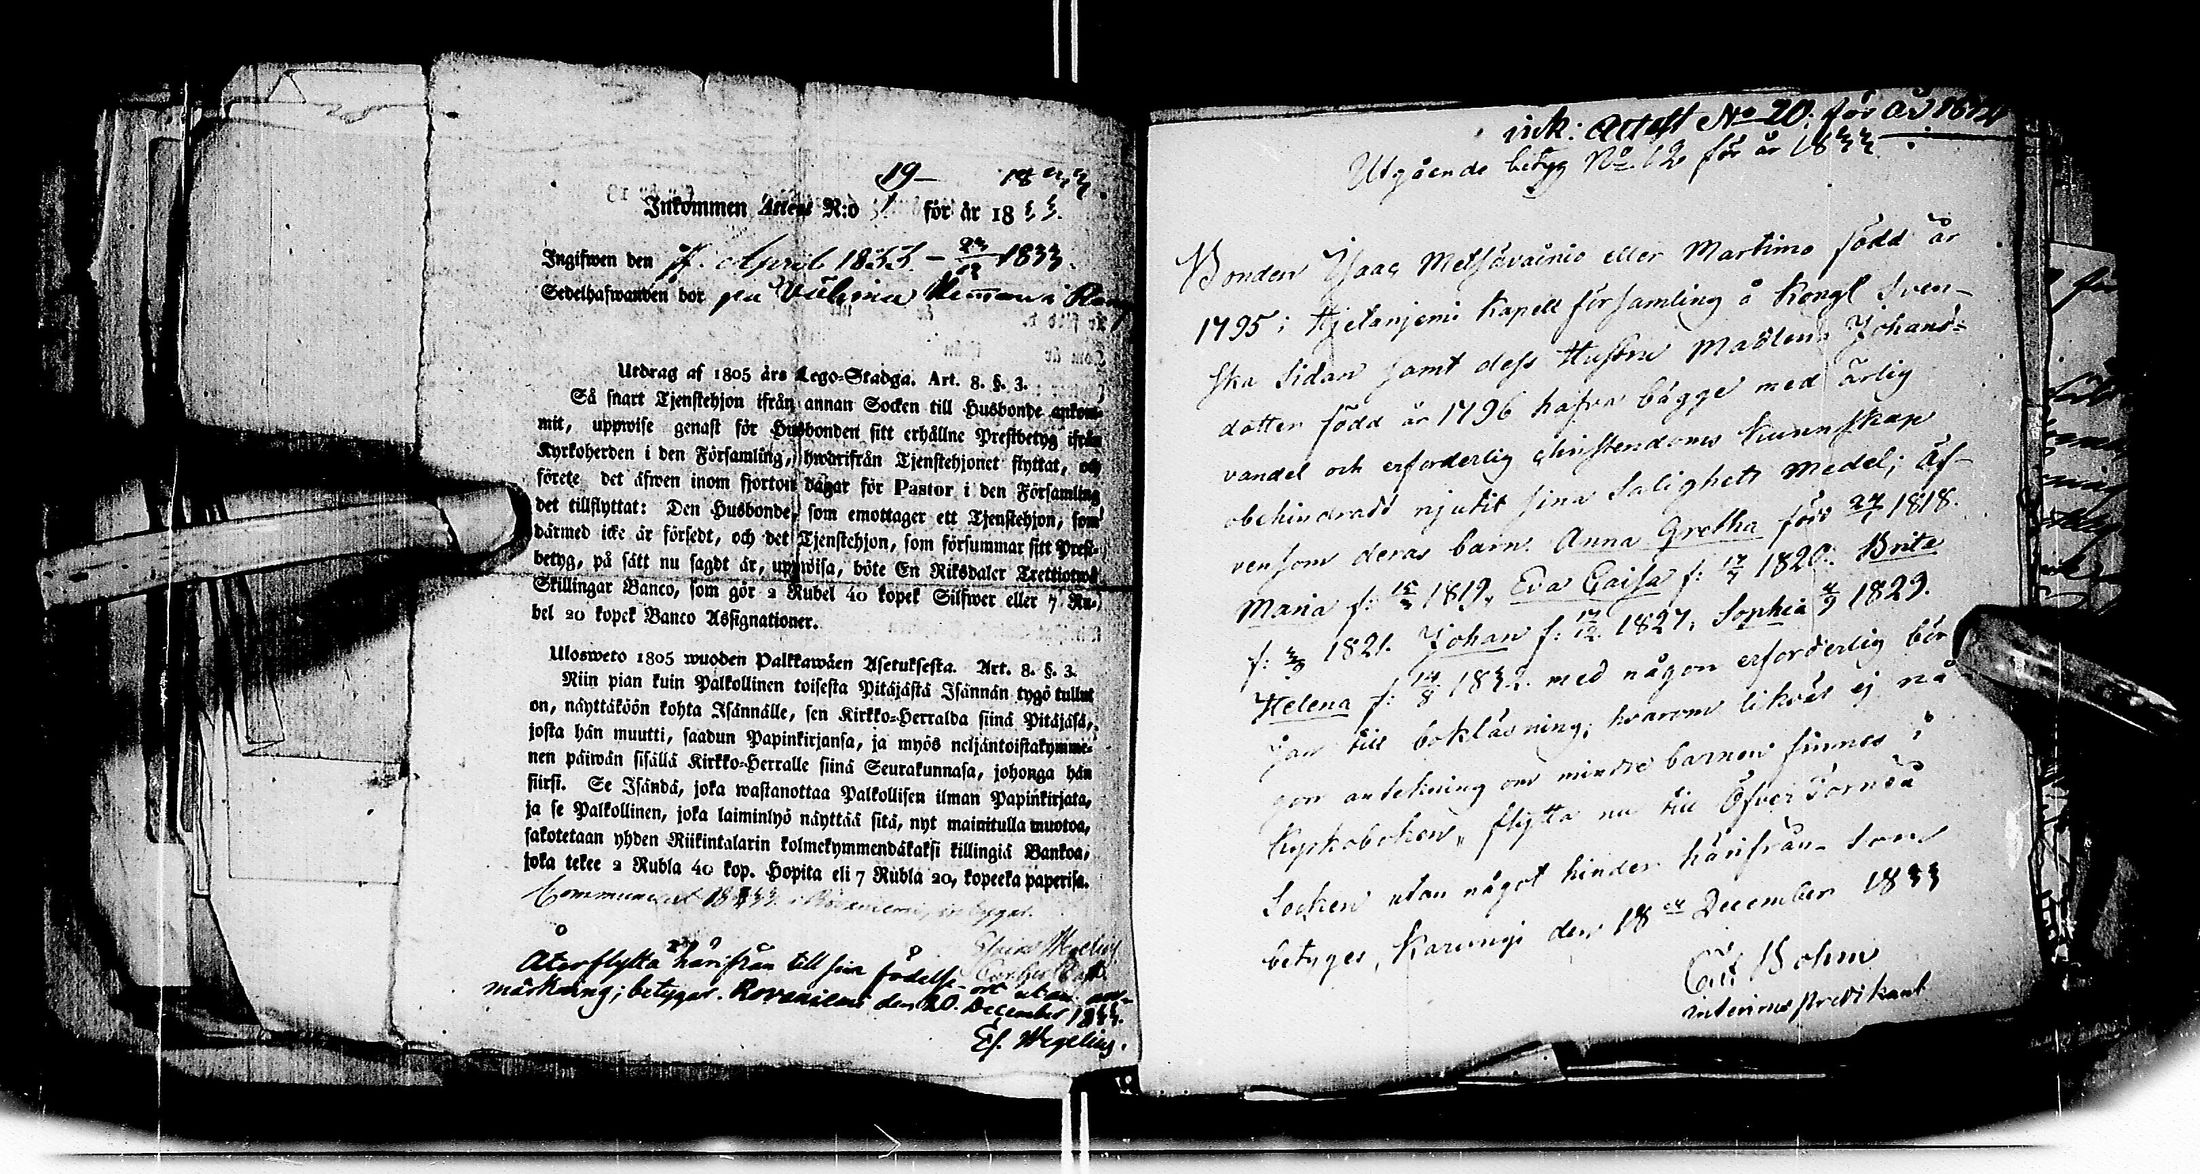 19 – 1833.
Inkommen Attest N:o 1 för år 1833.
Ingifwen den 7. April 1833. – 23/12 1833.
Sedelhafwanden bor
Utdrag af 1805 års Lego-Stadga. Art. 8. §. 3.
Så snart Tjenstehjon ifrån annan Socken till Husbonde ankom-
mit, uppwise genast för Husbonden sitt erhållne Prestbetyg ifrån
Kyrkoherden i den Församling, hwarifrån Tjenstehjonet flyttat, och
förete det äfwen inom fjorton dagar för Pastor i den Församling
det tillflyttat: Den Husbonde, som emottager ett Tjenstehjon, som
därmed icke är försedt, och det Tjenstehjon, som försummar sitt Prest-
betyg, på sätt nu sagdt är, uppwisa, böte En Riksdaler Trettiotwå
Skillingar Banco, som gör 2 Rubel 40 kopek Silfwer eller 7 Ru-
bel 20 kopek Banco Assignationer.
Ulosweto 1805 wuoden Palkkawäen Asetuksesta. Art. 8. §. 3.
Niin pian kuin Palkollinen toisesta Pitäjästä Isännän tygö tullut
on, näyttäköön kohta Isännälle, sen Kirkko-Herralda siinä Pitäjäsä,
josta hän muutti, saadun Papinkirjansa, ja myös neljäntoistakymme-
nen päiwän sisällä Kirkko-Herralle siinä Seurakunnasa, johonga hän
siirsi. Se Isändä, joka wastanottaa Palkollisen ilman Papinkirjata,
ja se Palkollinen, joka laiminlyö näyttää sitä, nyt mainitulla muotoa,
sakotetaan yhden Riikintalarin kolmekymmendäkaksi killingiä Bankoa,
joka tekee 2 Rubla 40 kop. Hopita eli 7 Rubla 20, kopeeka paperisa.
Communicerat 1833 i Rovaniemi, betygar.
Wegelius
Återflytta härifrån till sin födelse-ort utan an-
märkning; betygar. Rovaniemi den 20. December 1833.
Es. Wegelius.
ink: Attest No 20. för år 1834
Utgående betyg No 12 för år 1833.
Bonden Isaac Metsävainio eller Martimo född år
1795 i Hjetanjemi Kapell församling å Kongl Sven-
ska Sidan samt dess Hustru Madlena Johans-
dotter född år 1796 hafva bägge med ärlig
vandel och erforderlig christendoms kunnskap
obehindradt njutit sina Salighets medel; äf-
vensom deras barn Anna Gretha född 27/1 1818.
Maria f: 15/3 1819, Eva Caisa f: 17/7 1820. Brita
f: 3/8 1821. Johan f: 17/12 1827, Sophia 4/9 1829.
Helena f: 14/8 1832. med någon erforderlig bör
jan till bokläsning; hvarom likväl ej nå
gon antekning om mindre barnen finnes i
Kyrkoboken, flytta nu till Öfver Torneå
Socken utan något hinder härifrån som
betyges, Karungi den 18de December 1833
Bohm
interims predikant